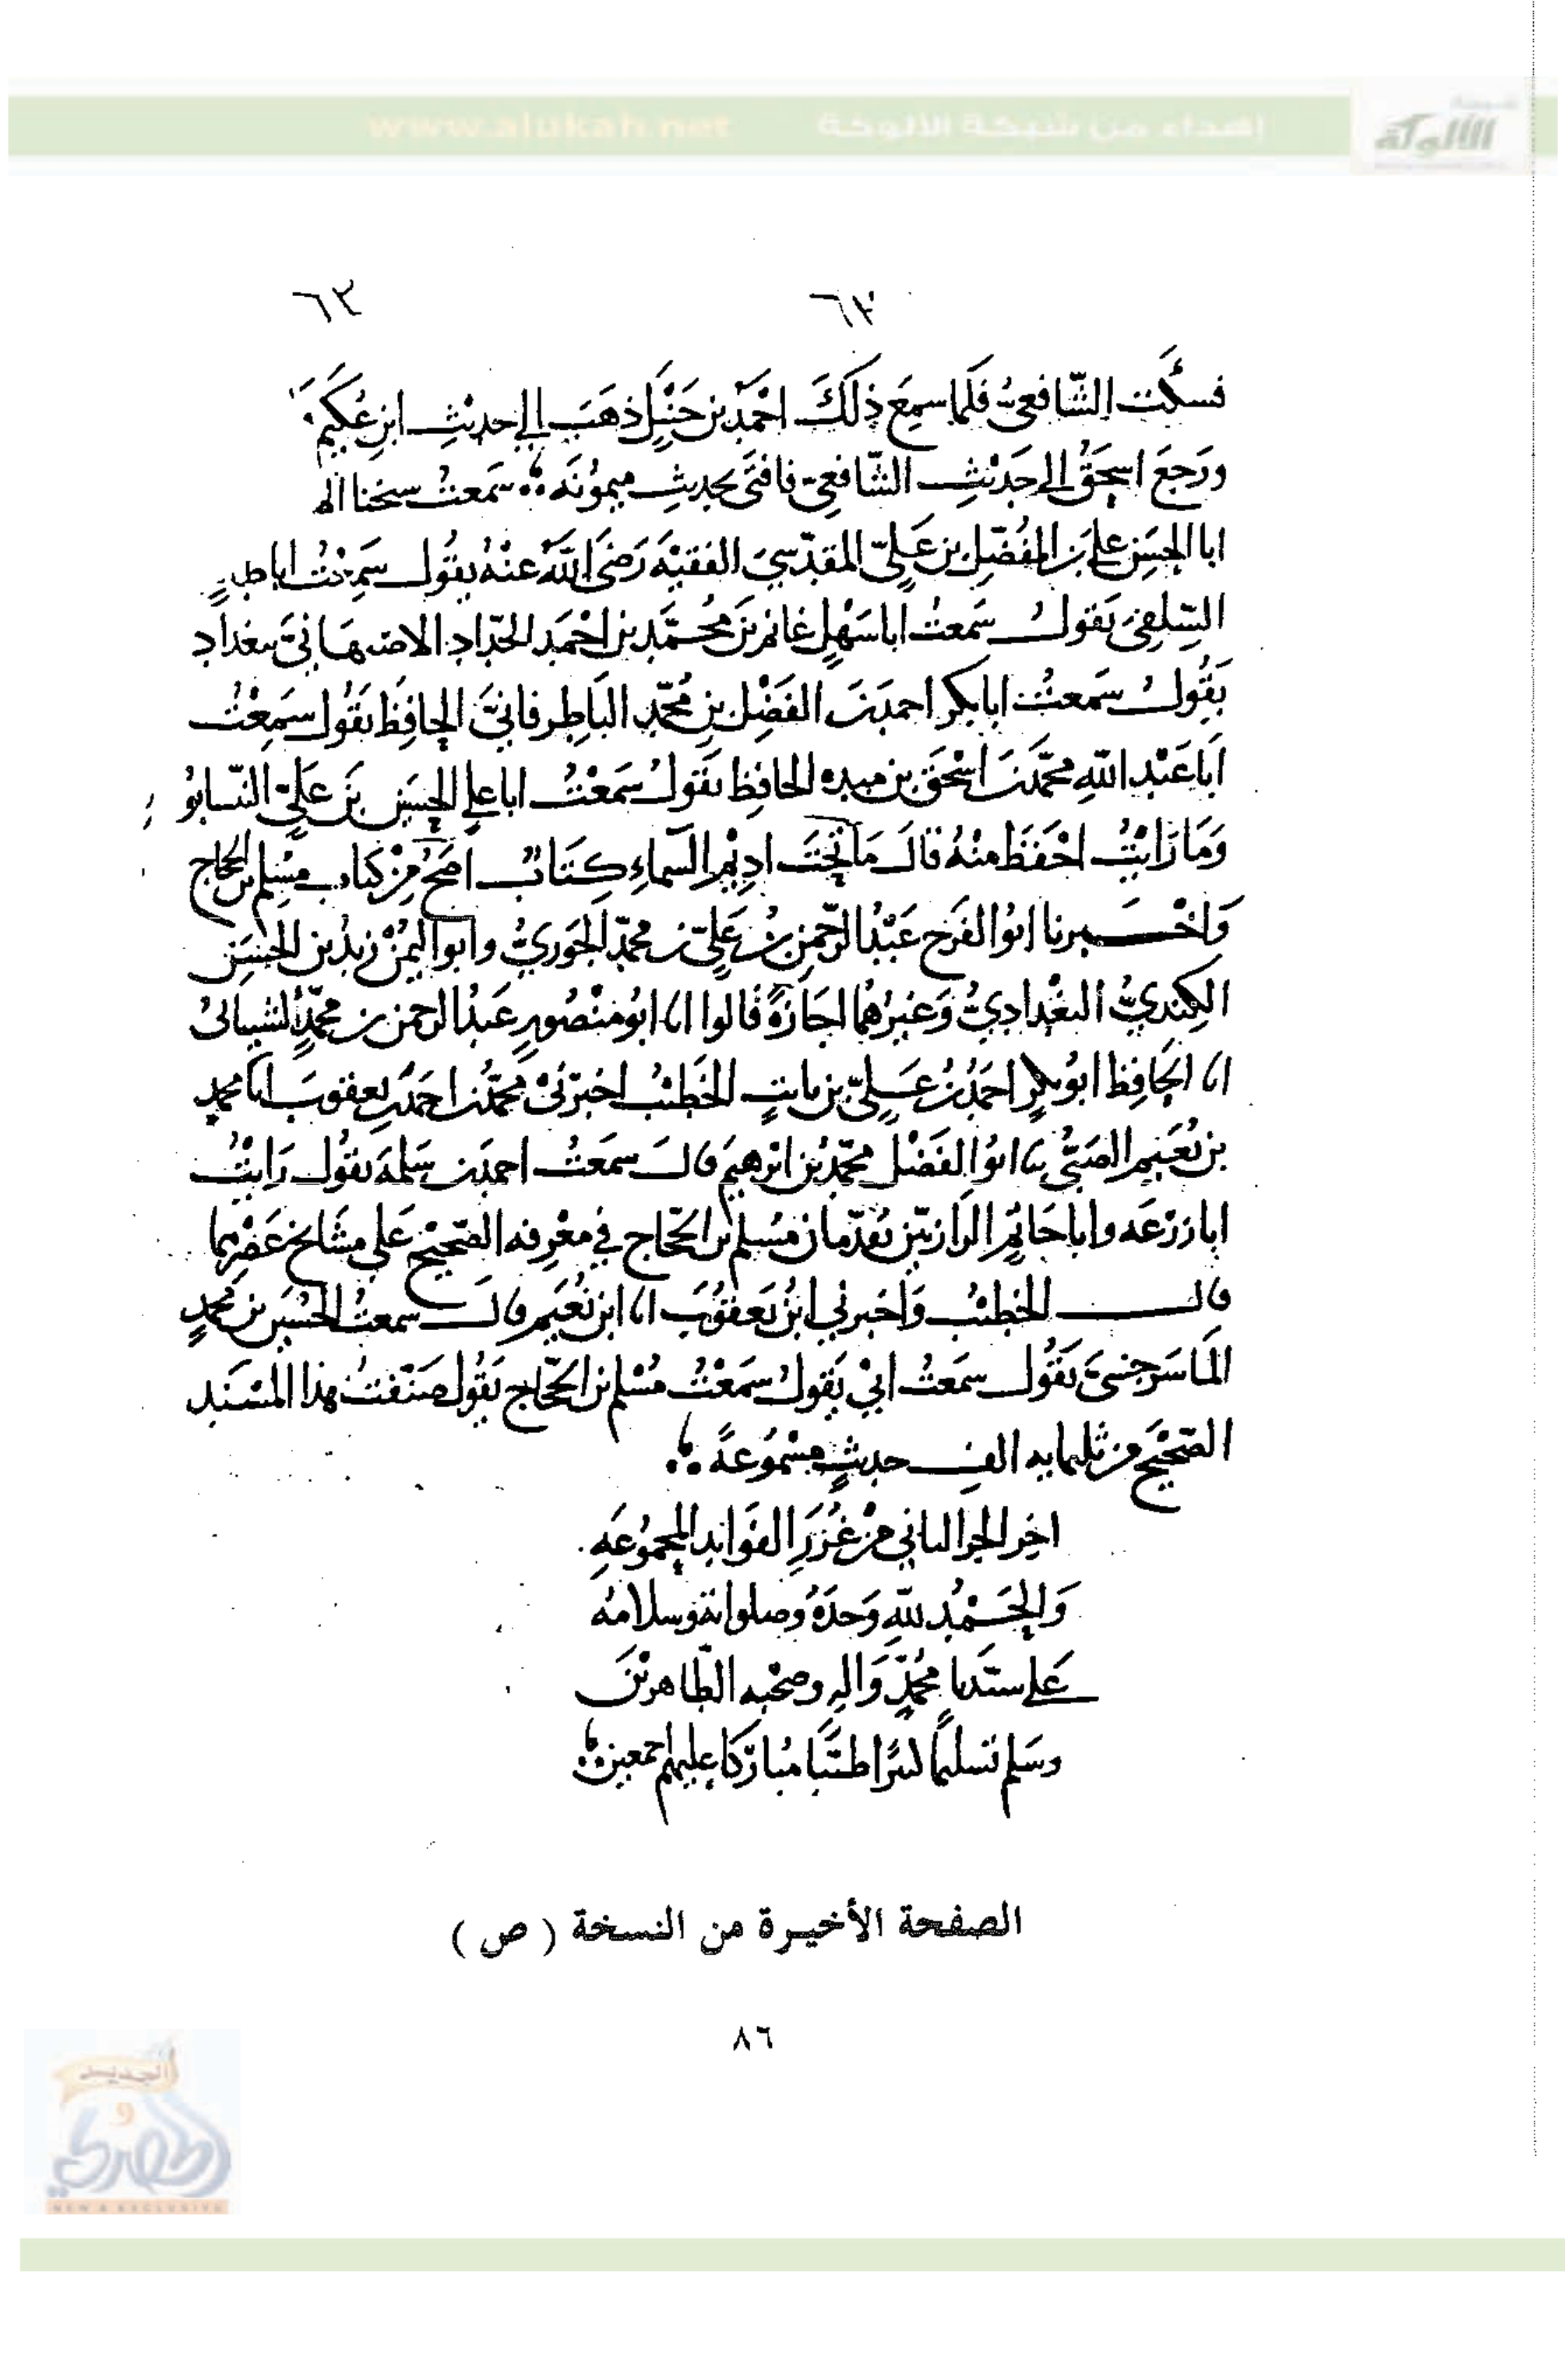 www.alukah.net إهداء من شبكة الألوكة
شبكة
الألوكة
٦٢ ٦٣
فسكت الشافعيّ فلما سمع ذلك احمد بن حنبل ذهب الى حديث ابن عكيم
ورجع اسحق الى حديث الشافعي فافتى بحديث ميمونه سمعت شيخنا
ابا الحسن علي بن المفضل بن علي المقدسي الفقيه رضي الله عنه يقول سمعت ابا طاهر
السلفي يقول سمعت ابا سهل غانم بن محمد بن احمد الحداد الاصبهاني ببغداد
يقول سمعت ابا بكر احمد بن الفضل بن محمد الباطرقاني الحافظ يقول سمعت
ابا عبد الله محمد بن اسحق بن منده الحافظ يقول سمعت ابا علي الحسين بن علي النيسابو
وما رايت احفظ منه قال ما تحت اديم السماء كتاب اصح من كتاب مسلم بن الحجاج
واخبرنا ابو الفرج عبد الرحمن بن علي بن محمد الجوزي وابو اليمن زيد بن الحسن
الكندي البغدادي وغيرهما اجازة قالوا انا ابو منصور عبد الرحمن بن محمد الشيباني
انا الحافظ ابو بكر احمد بن علي بن ثابت الخطيب اخبرني محمد بن احمد بن يعقوب انا محمد
بن نعيم الضبي نا ابو الفضل محمد بن ابرهيم قال سمعت احمد بن سلمه يقول رايت
ابا زرعه وابا حاتم الرازيين يقدمان مسلم بن الحجاج في معرفه الصحيح على مشايخ عصرهما
قال الخطيب واخبرني ابن يعقوب انا ابن نعيم قال سمعت الحسين بن محمد
الماسرجسي يقول سمعت ابي يقول سمعت مسلم بن الحجاج يقول صنفت هذا المسند
الصحيح من ثلثمايه الف حديث مسموعة
اخر الجز الثاني من غرر الفوايد المجموعه
والحمد لله وحده وصلواته وسلامه
على سيدنا محمد واله وصحبه الطاهرين
وسلم تسليما كثيرا طيبا مباركا عليهم اجمعين
الصفحة الأخيرة من النسخة ( ص )
٨٦
الجديد
و
الحصري
NEW & EXCLUSIVE